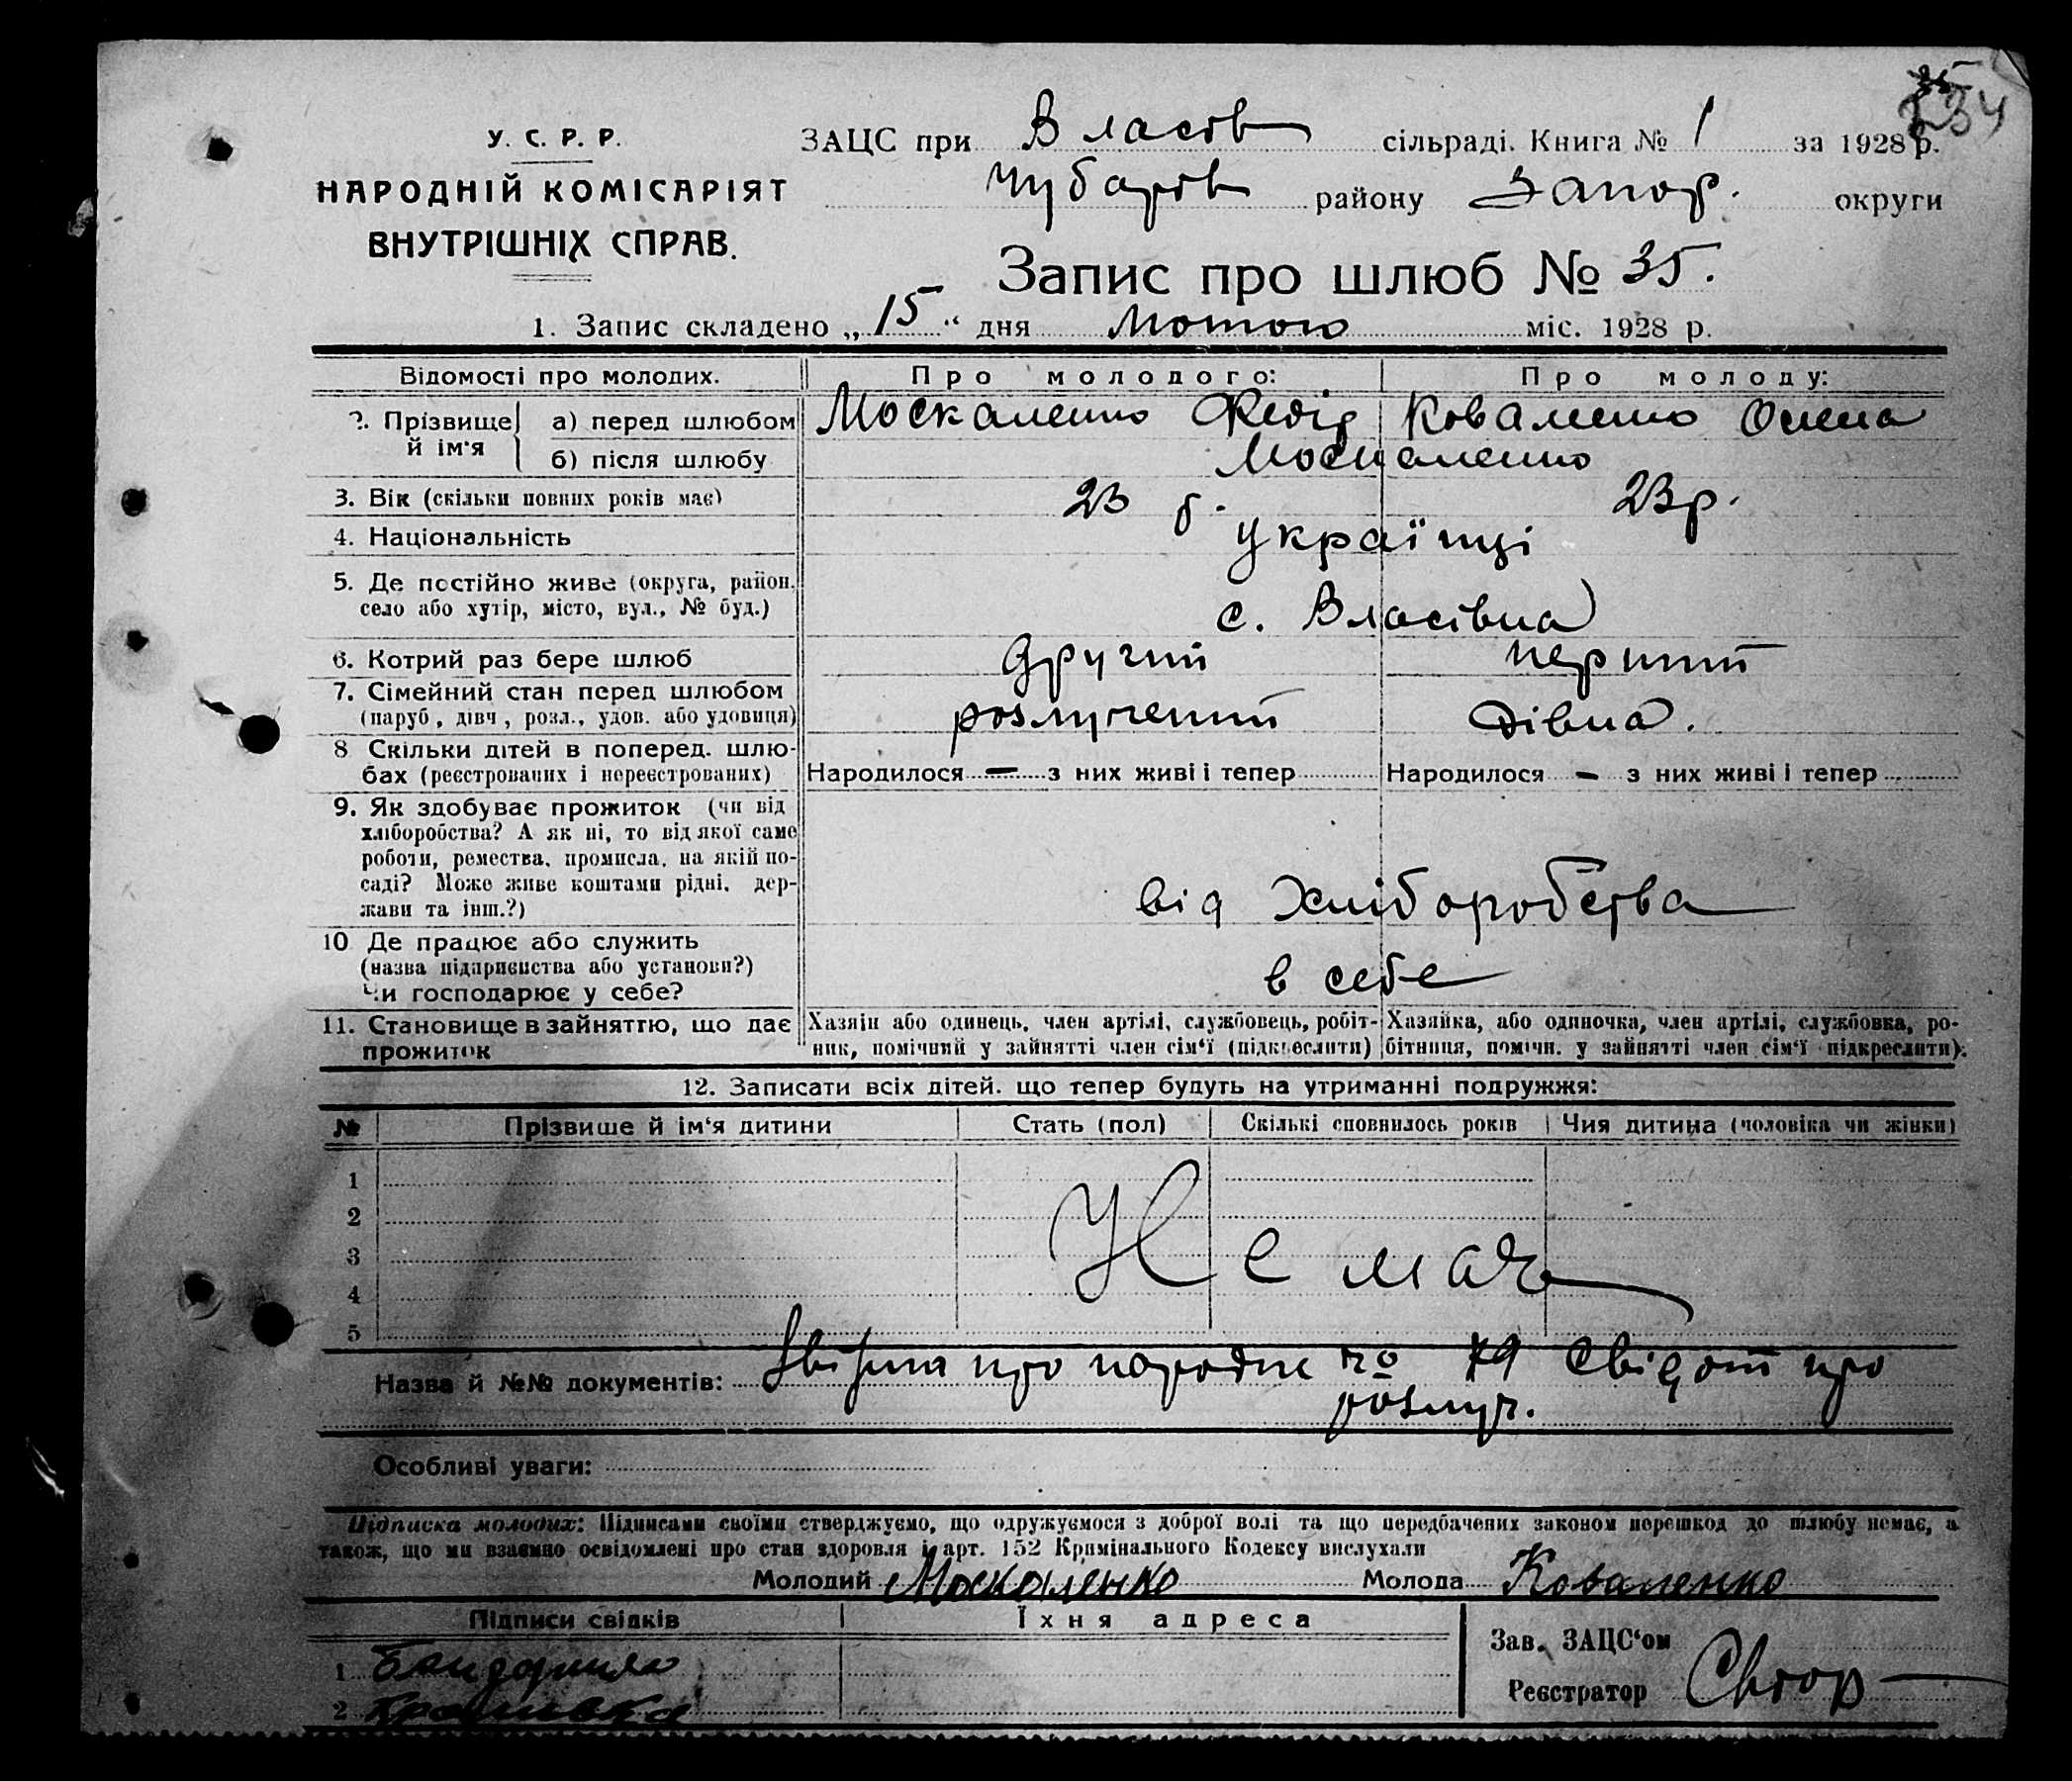 35
234
У. С. Р. Р.
НАРОДНІЙ КОМІСАРІЯТ
ВНУТРІШНІХ СПРАВ.
ЗАЦС при Власів сільраді. Книга № 1 за 1928 р.
Чубарів району Запор. округи
Запис про шлюб № 35.
1. Запис складено „15“ дня Лютого міс. 1928 р.
Відомості про молодих. Про молодого: Про молоду:
2. Прізвище й ім'я а) перед шлюбом Москаленко Федір Коваленко Олена
б) після шлюбу Москаленко
3. Вік (скільки повних років має) 23 р. 23 р.
4. Національність українці
5. Де постійно живе (округа, район,
село або хутір, місто, вул., № буд.) с. Власівка
6. Котрий раз бере шлюб другий перший
7. Сімейний стан перед шлюбом
(паруб, дівч, розл., удов. або удовиця) розлучений дівка.
8 Скільки дітей в поперед. шлю-
бах (реєстрованих і нереєстрованих) Народилося — з них живі і тепер Народилося — з них живі і тепер
9. Як здобуває прожиток (чи від
хліборобства? А як ні, то від якої саме
роботи, ремества, промисла, на якій по-
саді? Може живе коштами рідні, дер-
жави та інш.?) від хліборобства
10 Де працює або служить
(назва підприємства або установи?)
Чи господарює у себе? в себе
11. Становище в зайняттю, що дає
прожиток
Хазяін або одинець, член артілі, службовець, робіт-
ник, помічний у зайнятті член сім'ї (підкреслити)
Хазяйка, або одиночка, член артілі, службовка, ро-
бітниця, помічн. у зайнятті член сім'ї підкреслити).
12. Записати всіх дітей. що тепер будуть на утриманні подружжя:
№ Прізвише й ім'я дитини Стать (пол) Скількі сповнилось років Чия дитина (чоловіка чи жінки)
1
2
3
4
5
Немає
Назва й №№ документів: про народж № 79 Свідот про
розлуч.
Особливі уваги:
Підписка молодих: Підписами своїми стверджуємо, що одружуємося з доброї волі та що передбачених законом перешкод до шлюбу немає, а
також, що ми взаємно освідомлені про стан здоровля і арт. 152 Крамінального Кодексу вислухали
Молодий Москаленко Молода Коваленко
Підписи свідків Їхня адреса
Зав. ЗАЦС'ом
Реєстратор
1
2